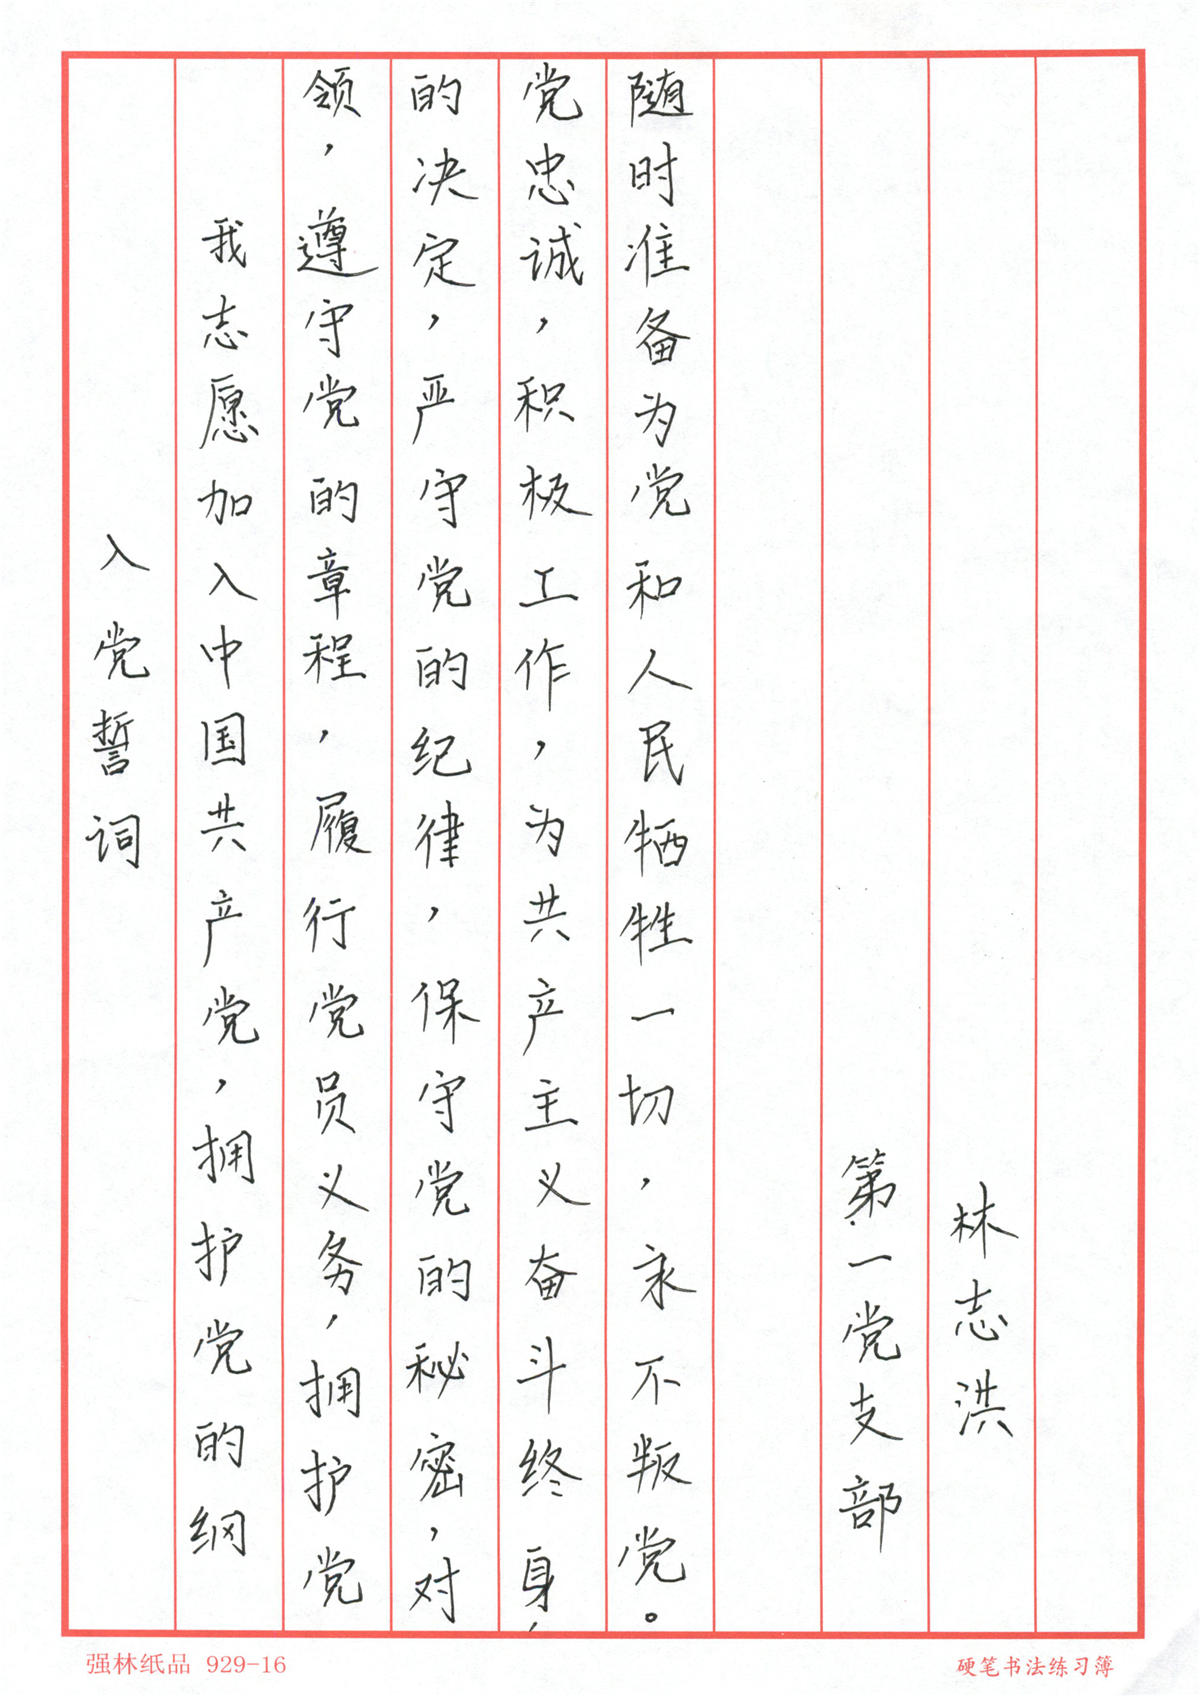 入党誓词
我志愿加入中国共产党，拥护党的纲
领，遵守党的章程，履行党员义务，拥护党
的决定，严守党的纪律，保守党的秘密，对
党忠诚，积极工作，为共产主义奋斗终身，
随时准备为党和人民牺牲一切，永不叛党。
第一党支部
林志洪
强林纸品 929-16
硬笔书法练习簿